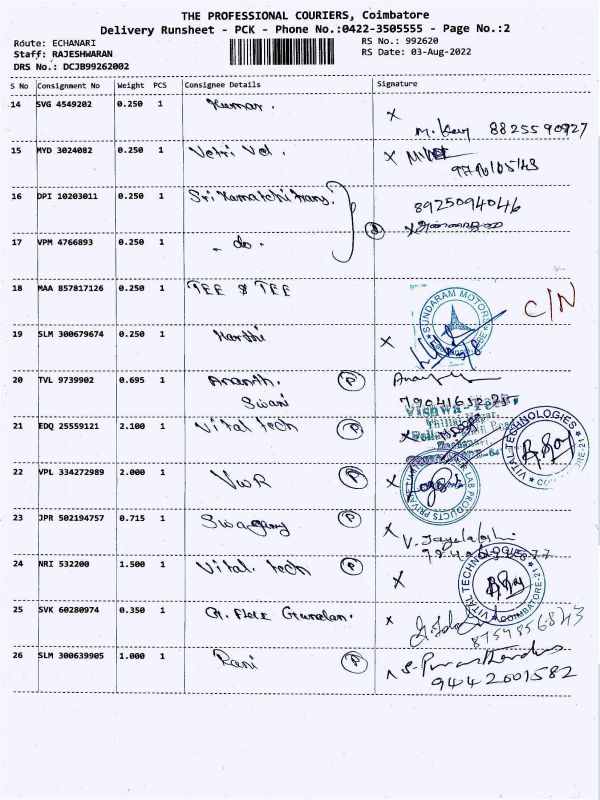 THE PROFESSIONAL COURIERS, Coimbatore
Delivery Runsheet - PCK - Phone No.:0422-3505555 - Page No.:2
Route: ECHANARI
RS No.: 992620
Staff: RAJESHWARAN
RS Date: 03-Aug-2022
DRS No.: DCJB99262002
S No Consignment No Weight PCS Consignee Details Signature
14 SVG 4549202 0.250 1 Kumar.
8825590927
15 MYD 3024082 0.250 1 Vetri Vel.
16 DPI 10203011 0.250 1 Sri Kamatchi trans.
8925094046
17 VPM 4766893 0.250 1 - do.
18 MAA 857817126 0.250 1 TEE & TEE
SUNDARAM MOTORS
C/N
19 SLM 300679674 0.250 1 Karthi
20 TVL 9739902 0.695 1 Ananth. P
Swani
21 EDQ 25559121 2.100 1 Vital tech P
VITAL TECHNOLOGIES
22 VPL 334272989 2.000 1 VWR P
LAB PRODUCTS
23 JPR 502194757 0.715 1 P
24 NRI 532200 1.500 1 Vital. tech P
VITAL TECHNOLOGIES
COIMBATORE-21
25 SVK 60280974 0.350 1
8754856843
26 SLM 300639905 1.000 1 Rani P
9442601582